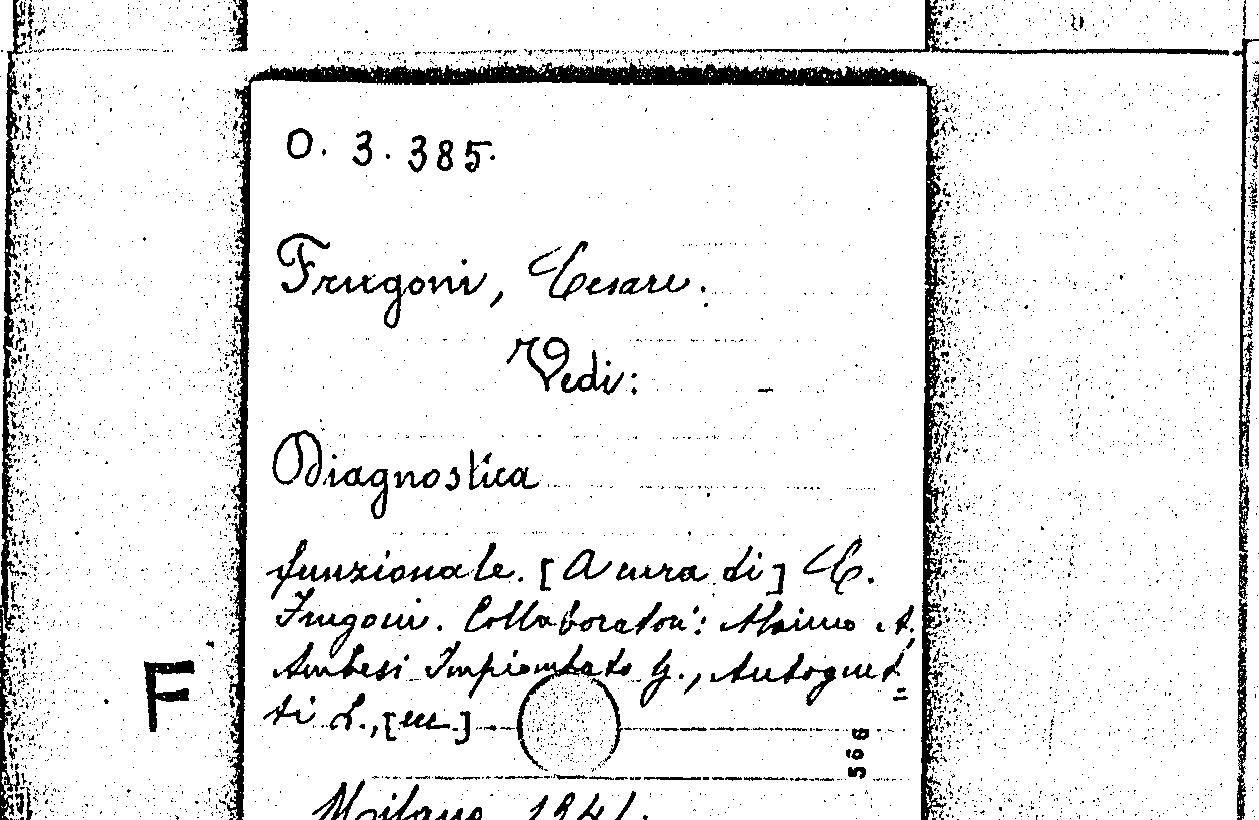 O. 3. 385.
Frugoni, Cesare.
Vedi:
Diagnostica
funzionale. [A cura di] C.
Frugoni. Collaboratori: Alzimo A.,
Ambesi Impiombato G., Autoguet=
ti L., [ecc.].
F
566
Milano, 1941.